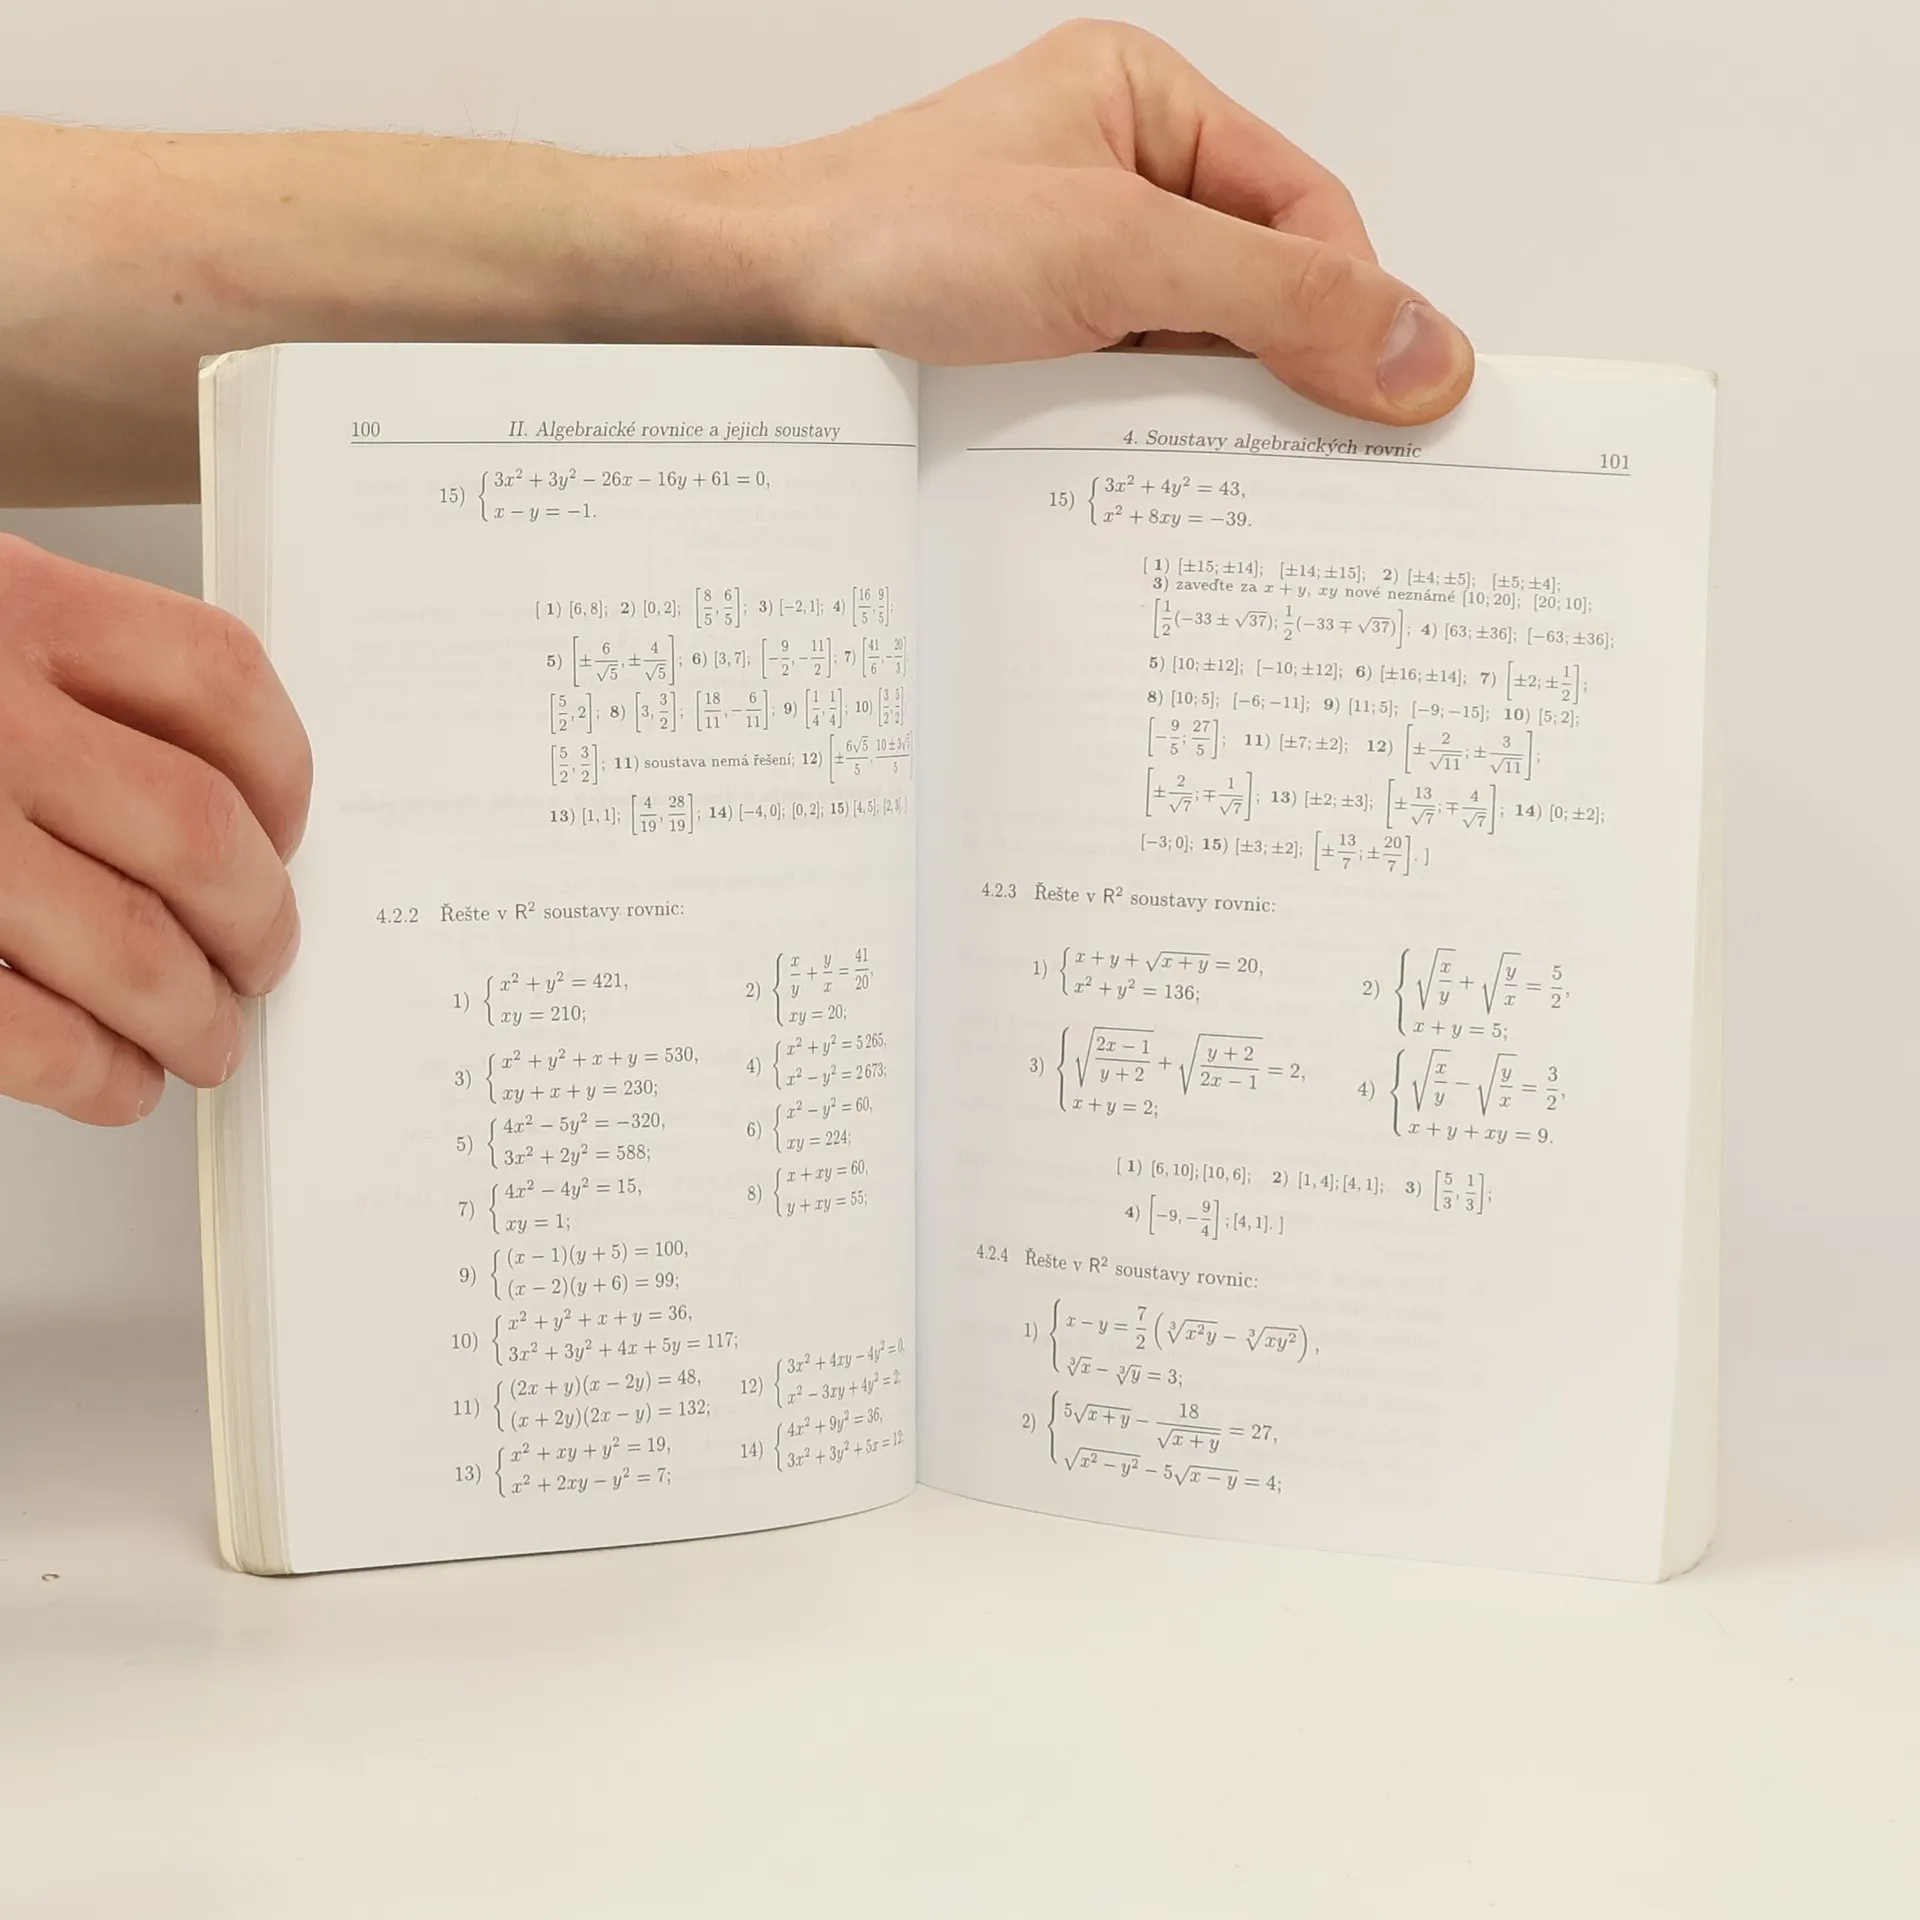 100 II. Algebraické rovnice a jejich soustavy
15) { 3x² + 3y² − 26x − 16y + 61 = 0,
x − y = −1.
[ 1) [6, 8]; 2) [0, 2]; [8/5, 6/5]; 3) [−2, 1]; 4) [16/5, 9/5];
5) [±6/√5, ±4/√5]; 6) [3, 7]; [−9/2, −11/2]; 7) [41/6, −20/3];
[5/2, 2]; 8) [3, 3/2]; [18/11, −6/11]; 9) [1/4, 1/4]; 10) [3/2, 5/2];
[5/2, 3/2]; 11) soustava nemá řešení; 12) [±6√5/5, 10±3√5/5]
13) [1, 1]; [4/19, 28/19]; 14) [−4, 0]; [0, 2]; 15) [4, 5]; [2, 3]. ]
4.2.2 Řešte v R² soustavy rovnic:
1) { x² + y² = 421,
xy = 210;
2) { x/y + y/x = 41/20,
xy = 20;
3) { x² + y² + x + y = 530,
xy + x + y = 230;
4) { x² + y² = 5 265,
x² − y² = 2 673;
5) { 4x² − 5y² = −320,
3x² + 2y² = 588;
6) { x² − y² = 60,
xy = 224;
7) { 4x² − 4y² = 15,
xy = 1;
8) { x + xy = 60,
y + xy = 55;
9) { (x − 1)(y + 5) = 100,
(x − 2)(y + 6) = 99;
10) { x² + y² + x + y = 36,
3x² + 3y² + 4x + 5y = 117;
11) { (2x + y)(x − 2y) = 48,
(x + 2y)(2x − y) = 132;
12) { 3x² + 4xy − 4y² = 0,
x² − 3xy + 4y² = 2;
13) { x² + xy + y² = 19,
x² + 2xy − y² = 7;
14) { 4x² + 9y² = 36,
3x² + 3y² + 5x = 12;
4. Soustavy algebraických rovnic 101
15) { 3x² + 4y² = 43,
x² + 8xy = −39.
[ 1) [±15; ±14]; [±14; ±15]; 2) [±4; ±5]; [±5; ±4];
3) zaveďte za x + y, xy nové neznámé [10; 20]; [20; 10];
[1/2(−33 ± √37); 1/2(−33 ∓ √37)]; 4) [63; ±36]; [−63; ±36];
5) [10; ±12]; [−10; ±12]; 6) [±16; ±14]; 7) [±2; ±1/2];
8) [10; 5]; [−6; −11]; 9) [11; 5]; [−9; −15]; 10) [5; 2];
[−9/5; 27/5]; 11) [±7; ±2]; 12) [±2/√11; ±3/√11];
[±2/√7; ∓1/√7]; 13) [±2; ±3]; [±13/√7; ∓4/√7]; 14) [0; ±2];
[−3; 0]; 15) [±3; ±2]; [±13/7; ±20/7]. ]
4.2.3 Řešte v R² soustavy rovnic:
1) { x + y + √(x + y) = 20,
x² + y² = 136;
2) { √(x/y) + √(y/x) = 5/2,
x + y = 5;
3) { √((2x − 1)/(y + 2)) + √((y + 2)/(2x − 1)) = 2,
x + y = 2;
4) { √(x/y) − √(y/x) = 3/2,
x + y + xy = 9.
[ 1) [6, 10]; [10, 6]; 2) [1, 4]; [4, 1]; 3) [5/3, 1/3];
4) [−9, −9/4]; [4, 1]. ]
4.2.4 Řešte v R² soustavy rovnic:
1) { x − y = 7/2 (∛(x²y) − ∛(xy²)),
∛x − ∛y = 3;
2) { 5√(x + y) − 18/√(x + y) = 27,
√(x² − y²) − 5√(x − y) = 4;